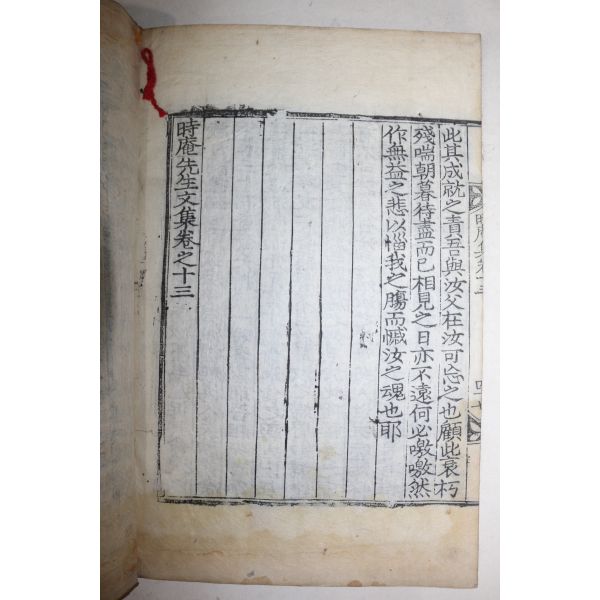 時庵集卷十三
此其成就之責吾與汝父在汝可忘之也顧此衰朽
殘喘朝暮待盡而已相見之日亦不遠何必噭噭然
作無益之悲以惱我之膓而慽汝之魂也耶
時庵先生文集卷之十三